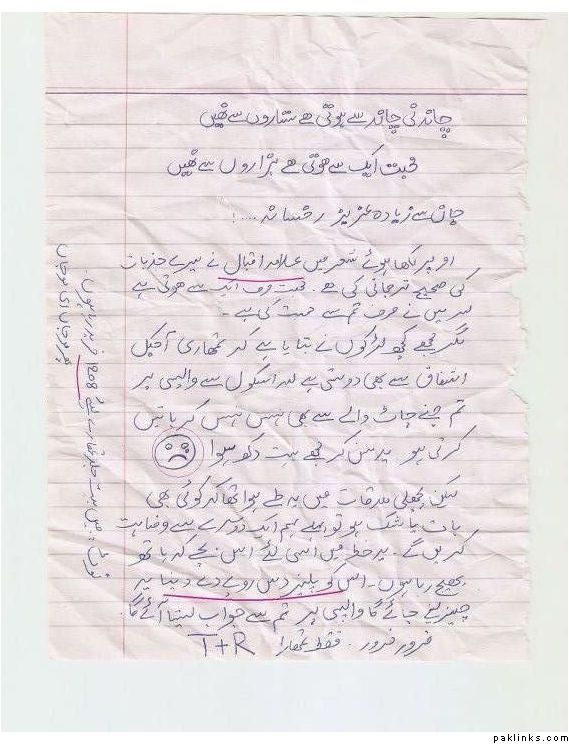 چاندنی چاند سے ہوتی ہے ستاروں سے نہیں
محبت ایک سے ہوتی ہے ہزاروں سے نہیں
جان سے زیادہ عزیز رخسانہ ....!
اوپر لکھا ہوئے شعر میں علامہ اقبال نے میرے جذبات
کی صحیح ترجمانی کی ہے۔ محبت صرف ایک سے ہوتی ہے
اور میں نے صرف تم سے محبت کی ہے۔
مگر مجھے کچھ لڑکوں نے بتایا ہے کہ تمھاری آجکل
اشفاق سے بھی دوستی ہے اور اسکول سے واپسی پر
تم چنے چاٹ والے سے بھی ہنس ہنس کر باتیں
کرتی ہو یہ سن کر مجھے بہت دکھ ہوا
لیکن پچھلی ملاقات میں یہ طے ہوا تھا کہ کوئی بھی
بات یا شک ہو تو پہلے ہم ایک دوسرے سے وضاحت
کریں گے۔ یہ خط میں اسی لئے اس بچے کے ہاتھ
بھیج رہا ہوں۔ اس کو پلیز دس روپے دے دینا یہ
چیز لینے جائے گا واپسی پر تم سے جواب لیتا آئے گا۔
ضرور ضرور۔ فقط تمھارا T+R
نوٹ:۔ میں بہت جلد تمھارے لئے 1208 خرید رہا ہوں۔
پھر موجاں ای موجاں